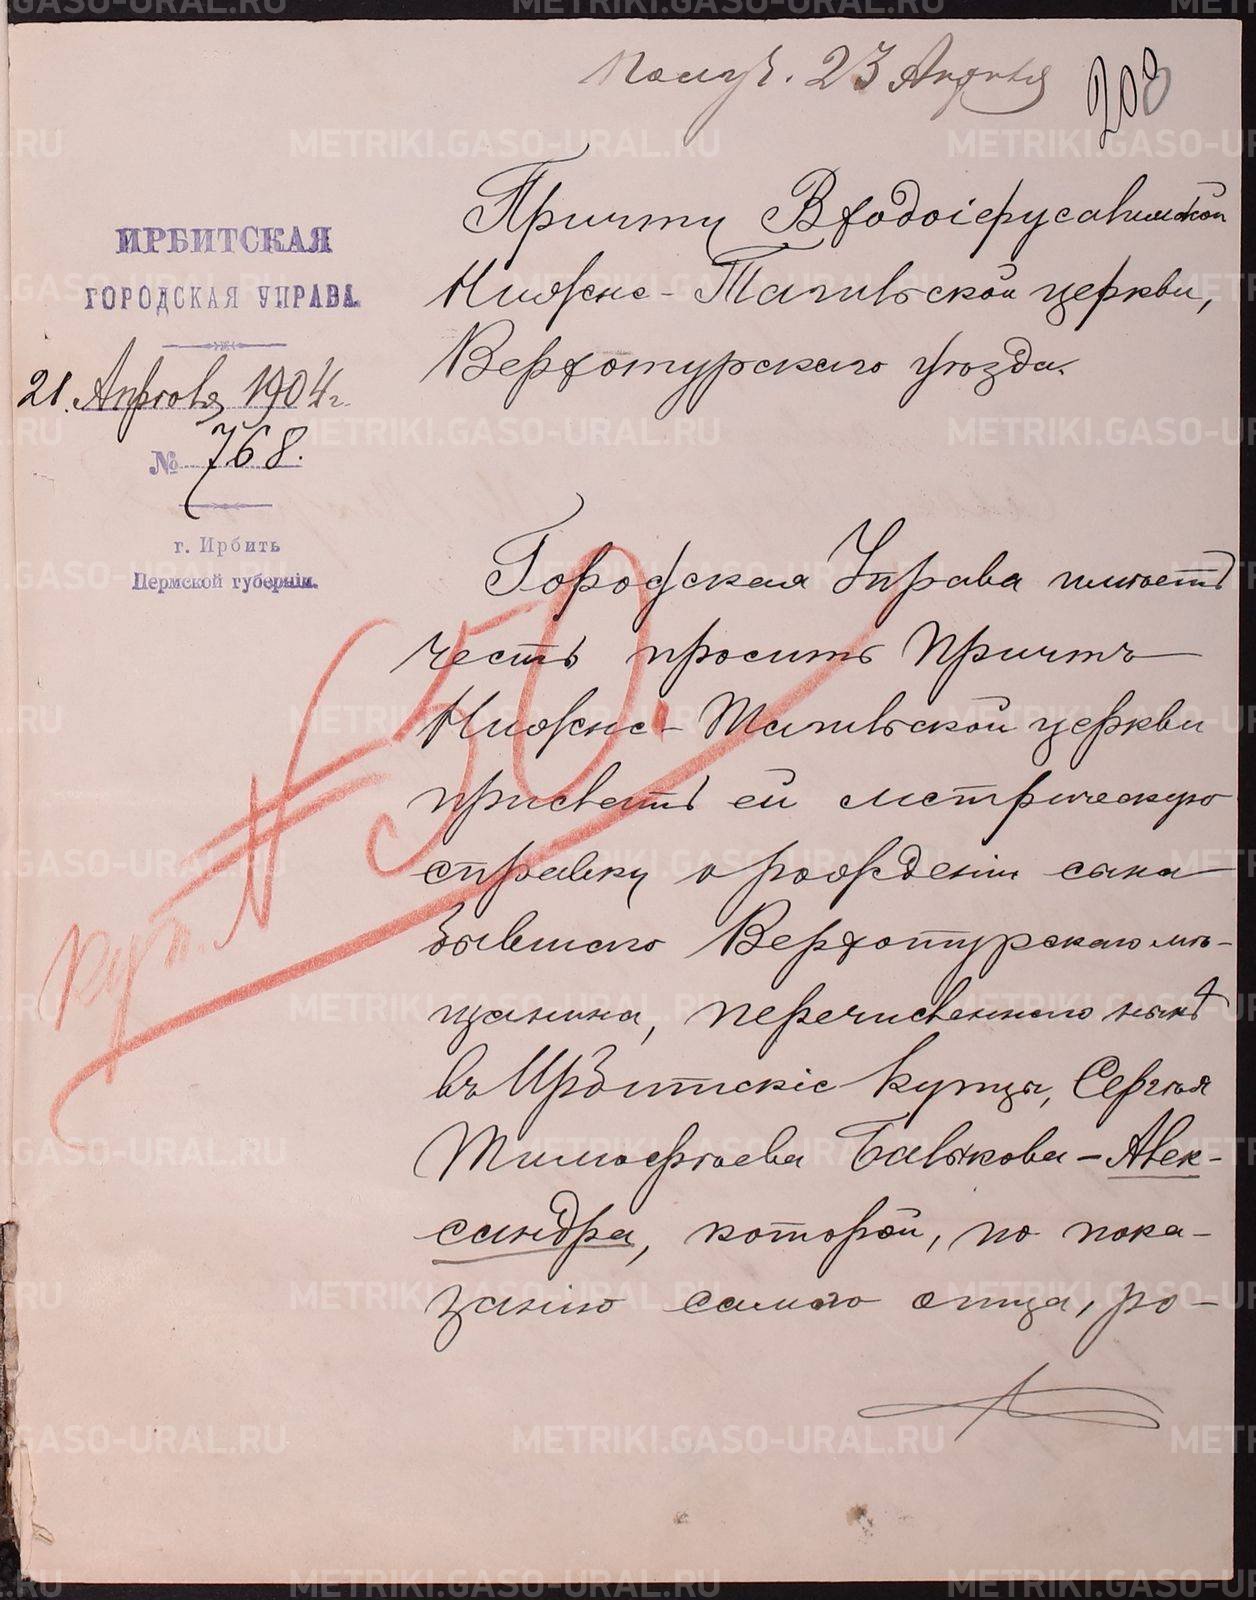 Получ. 23 Апрѣля
208
ИРБИТСКАЯ
ГОРОДСКАЯ УПРАВА.
21. Апрѣля 1904 г.
№ 768.
г. Ирбить
Пермской губерніи.
Причту Входоіерусалимской
Нижне-Тагильской церкви,
Верхотурскаго уѣзда.
Городская Управа имѣетъ
честь просить Причтъ
Нижне-Тагильской церкви
прислать ей метрическую
справку о рожденіи сына
бывшаго Верхотурскаго мѣ-
щанина, перечисленнаго нынѣ
въ Ирбитскіе купцы, Сергѣя
Тимофѣева Балакова - Алек-
сандра, который, по пока-
занію самаго отца, ро-
№ 50.
METRIKI.GASO-URAL.RU